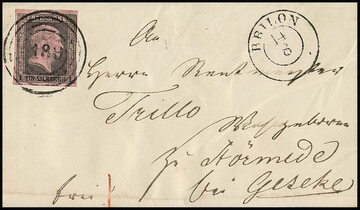 FREIMARKE
189
1 EIN SILBERGR. 1
BRILON
17
8
An
Herrn Rentmeister
Trillo
Wohlgeboren
zu Störmede
bei Geseke
frei